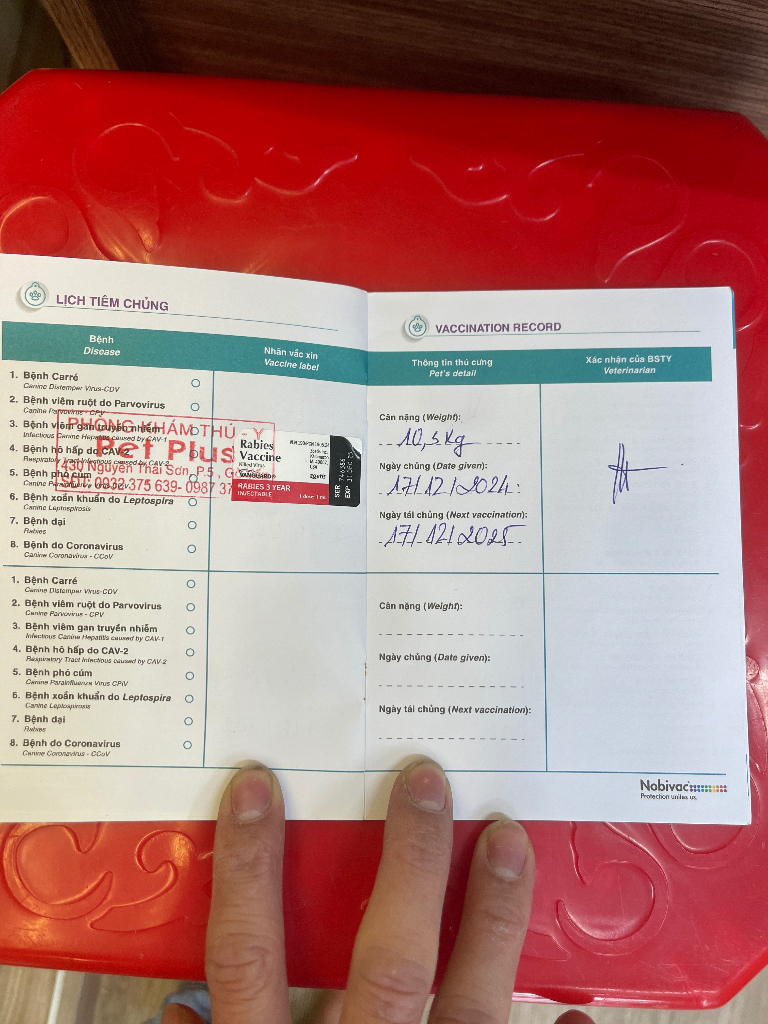 LỊCH TIÊM CHỦNG
Bệnh
Disease
Nhãn vắc xin
Vaccine label
1. Bệnh Carré
Canine Distemper Virus-CDV
2. Bệnh viêm ruột do Parvovirus
Canine Parvovirus - CPV
3. Bệnh viêm gan truyền nhiễm
Infectious Canine Hepatitis caused by CAV-1
4. Bệnh hô hấp do CAV-2
Respiratory Tract Infectious caused by CAV-2
5. Bệnh phó cúm
Canine Parainfluenza Virus
6. Bệnh xoắn khuẩn do Leptospira
Canine Leptospirosis
7. Bệnh dại
Rabies
8. Bệnh do Coronavirus
Canine Coronavirus - CCoV
PHÒNG KHÁM THÚ - Y
Pet Plus
430 Nguyễn Thái Sơn, P.5, G
SĐT: 0932 375 639- 0987 37
Rabies
Vaccine
Killed Virus
VANGUARD®
zoetis
RABIES 3 YEAR
INJECTABLE
1 dose 1 mL
SER 746356
EXP
1. Bệnh Carré
Canine Distemper Virus-CDV
2. Bệnh viêm ruột do Parvovirus
Canine Parvovirus - CPV
3. Bệnh viêm gan truyền nhiễm
Infectious Canine Hepatitis caused by CAV-1
4. Bệnh hô hấp do CAV-2
Respiratory Tract Infectious caused by CAV-2
5. Bệnh phó cúm
Canine Parainfluenza Virus CPiV
6. Bệnh xoắn khuẩn do Leptospira
Canine Leptospirosis
7. Bệnh dại
Rabies
8. Bệnh do Coronavirus
Canine Coronavirus - CCoV
VACCINATION RECORD
Thông tin thú cưng
Pet's detail
Xác nhận của BSTY
Veterinarian
Cân nặng (Weight):
10,5 kg
Ngày chủng (Date given):
17/12/2024
Ngày tái chủng (Next vaccination):
17/12/2025
Cân nặng (Weight):
Ngày chủng (Date given):
Ngày tái chủng (Next vaccination):
Nobivac
Protection unites us.